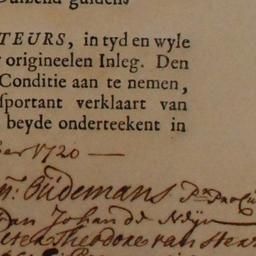 Duizend guldens
TEURS, in tyd en wyle
origineelen Inleg. Den
Conditie aan te nemen,
sportant verklaart van
beyde onderteekent in
ber 1720
Büdemans
Johan de
Theodore van